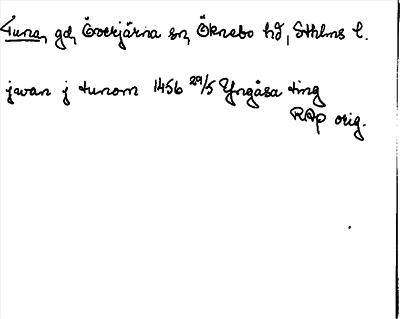 Tuna, gd, Överjärna sn, Öknebo hd, Sthlms l.
jwan j tunom 1456 29/5 Yngåsa ting
RAp orig.